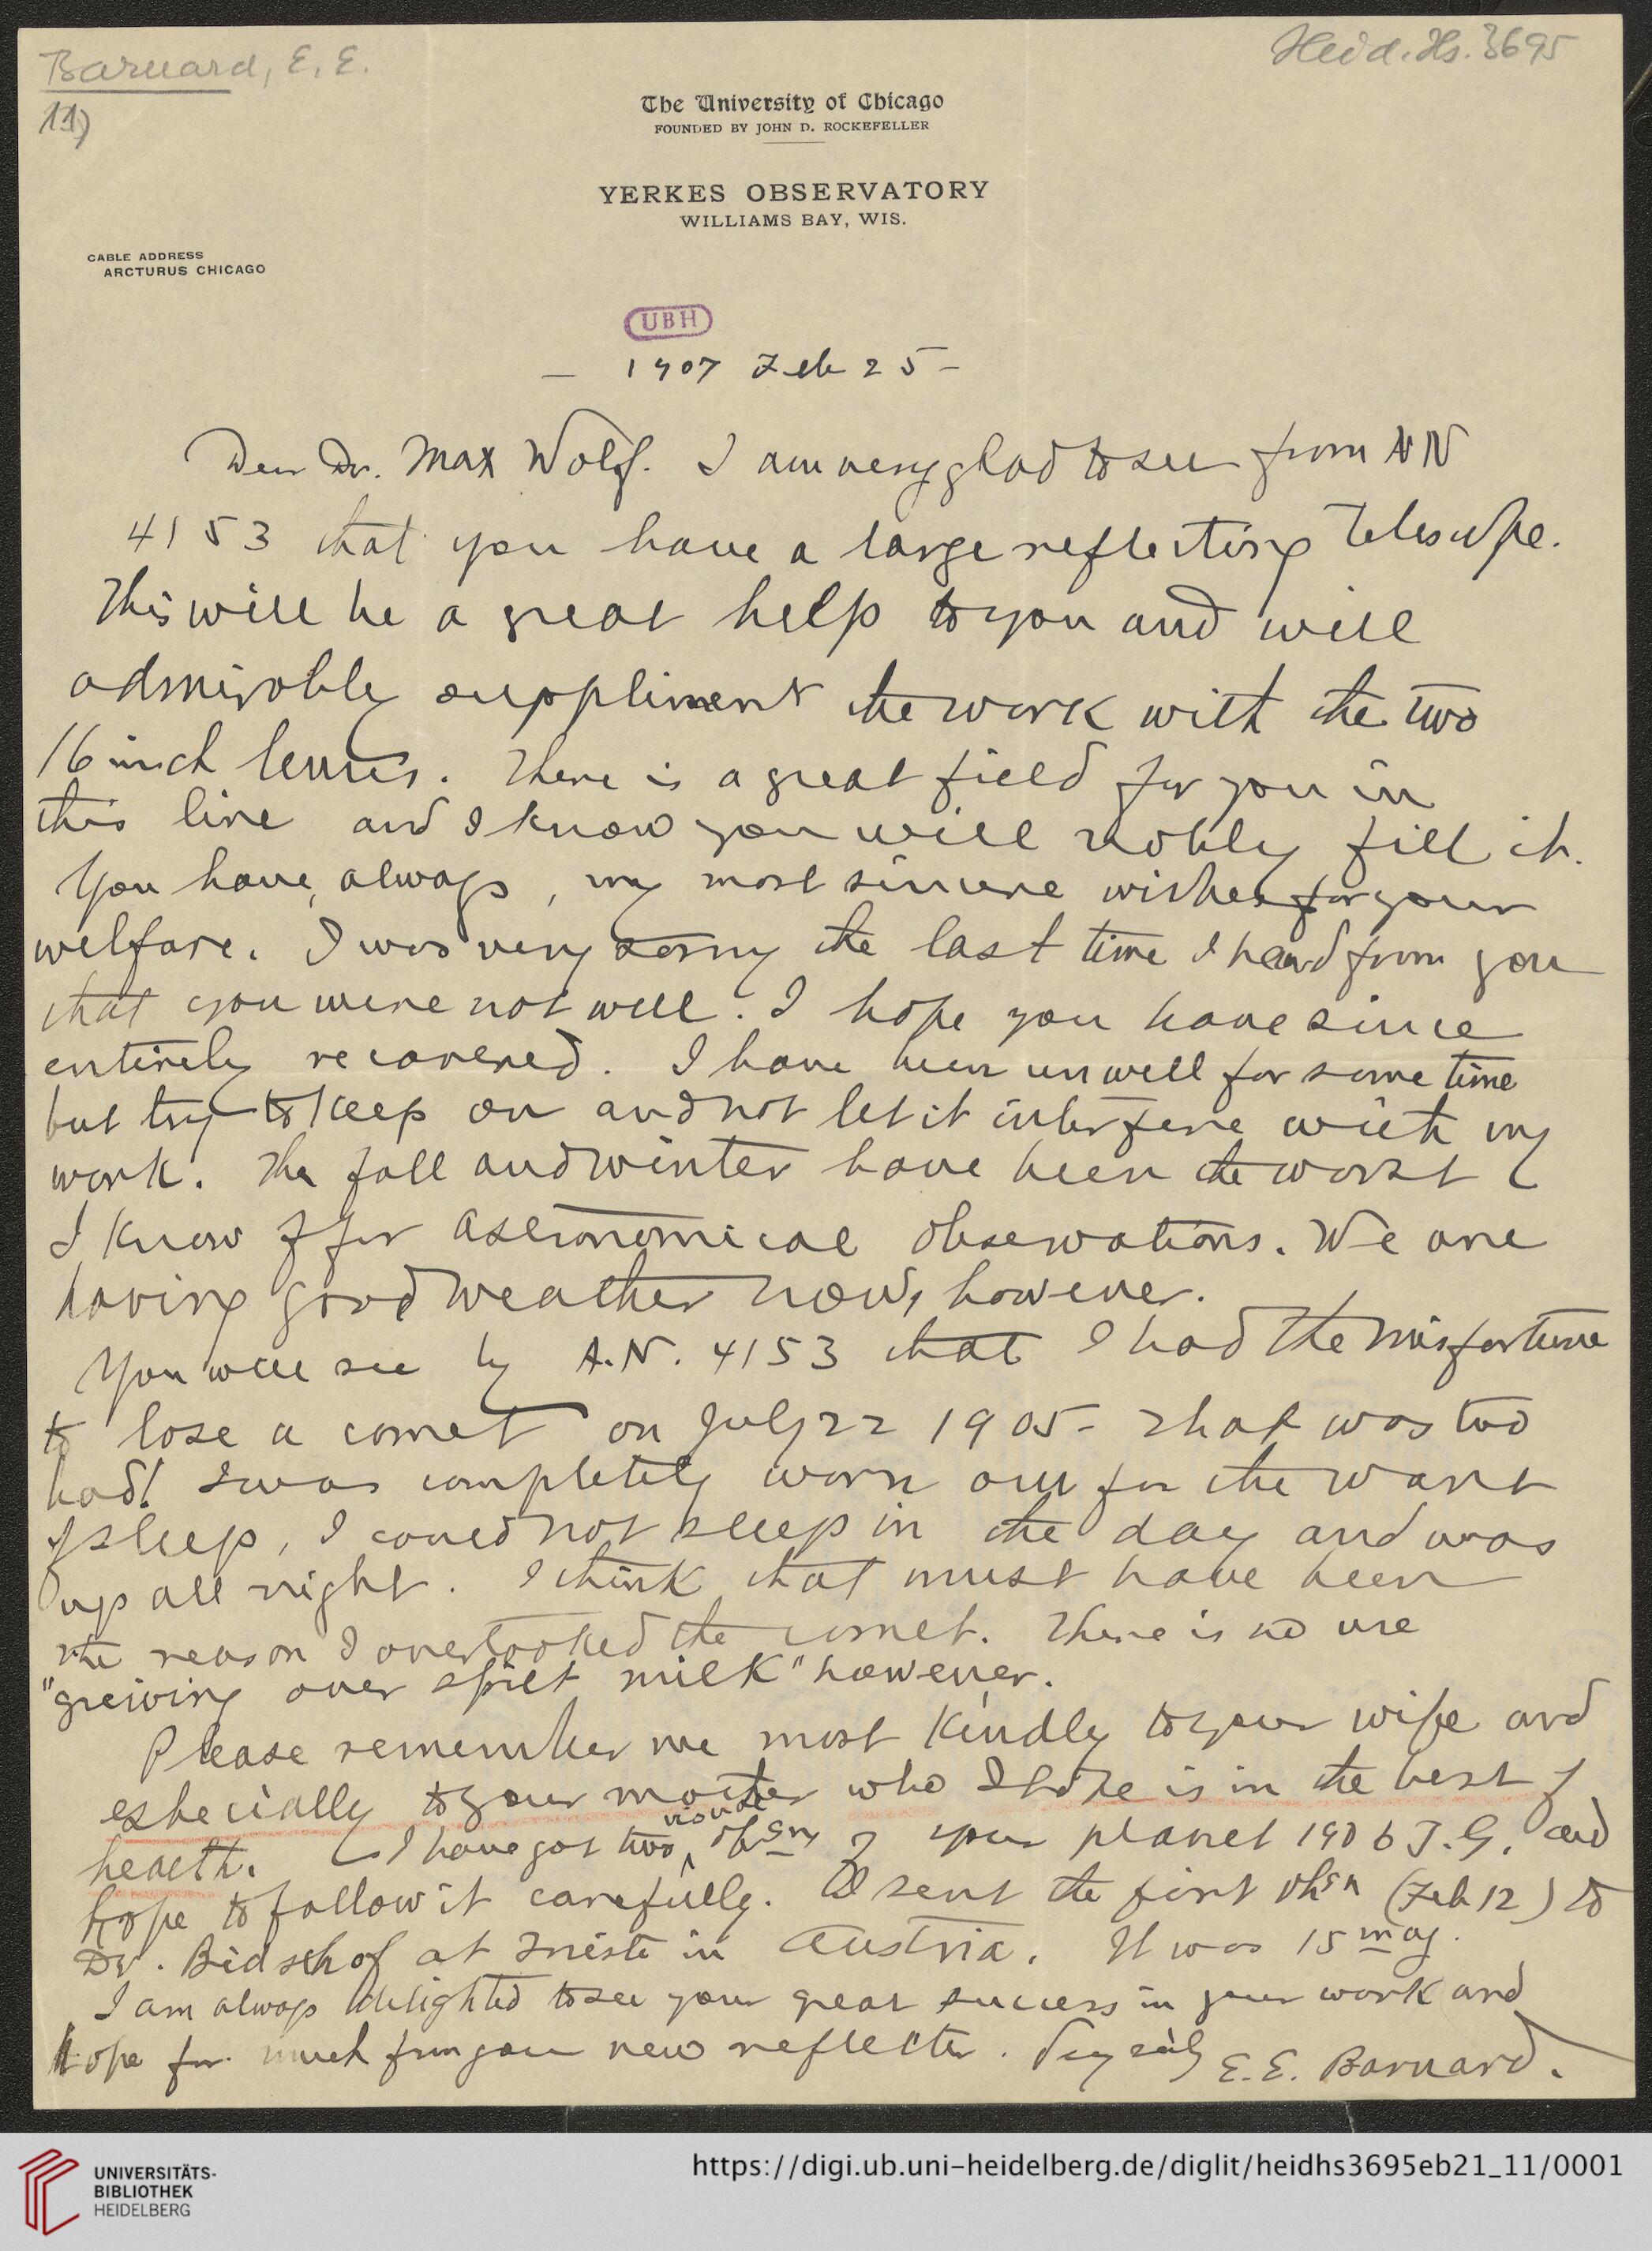 Barnard, E. E.
Heid. Hs. 3695
11)
The University of Chicago
FOUNDED BY JOHN D. ROCKEFELLER
YERKES OBSERVATORY
WILLIAMS BAY, WIS.
CABLE ADDRESS
ARCTURUS CHICAGO
UBH
— 1907 Feb 25 —
Dear Dr. Max Wolf. I am very glad to see from AN
4153 that you have a large reflecting telescope.
This will be a great help to you and will
admirably suppliment the work with the two
16 inch lenses. There is a great field for you in
this line and I know you will nobly fill it.
You have, always, my most sincere wishes for your
welfare. I was very sorry the last time I heard from you
that you were not well. I hope you have since
entirely recovered. I have been unwell for some time
but try to keep on and not let it interfere with my
work. The fall and winter have been the worst
I know of for astronomical observations. We are
having good weather now, however.
You will see by A.N. 4153 that I had the misfortune
to lose a comet on July 22 1905 - That was too
bad! I was completely worn out for the want
of sleep, I could not sleep in the day and was
up all night. I think that must have been
the reason I overlooked the comet. There is no use
"greiving over spilt milk" however.
Please remember me most kindly to your wife and
especially to your mother who I hope is in the best of
health. I have got two visual obsns of your planet 1906 T.G. and
hope to follow it carefully. I sent the first obsn (Feb 12) to
Dr. Bidschof at Trieste in Austria. It was 15 mag.
I am always delighted to see your great success in your work and
hope for much from your new reflector. E. E. Barnard.
UNIVERSITÄTS-
BIBLIOTHEK
HEIDELBERG
https://digi.ub.uni-heidelberg.de/diglit/heidhs3695eb21_11/0001